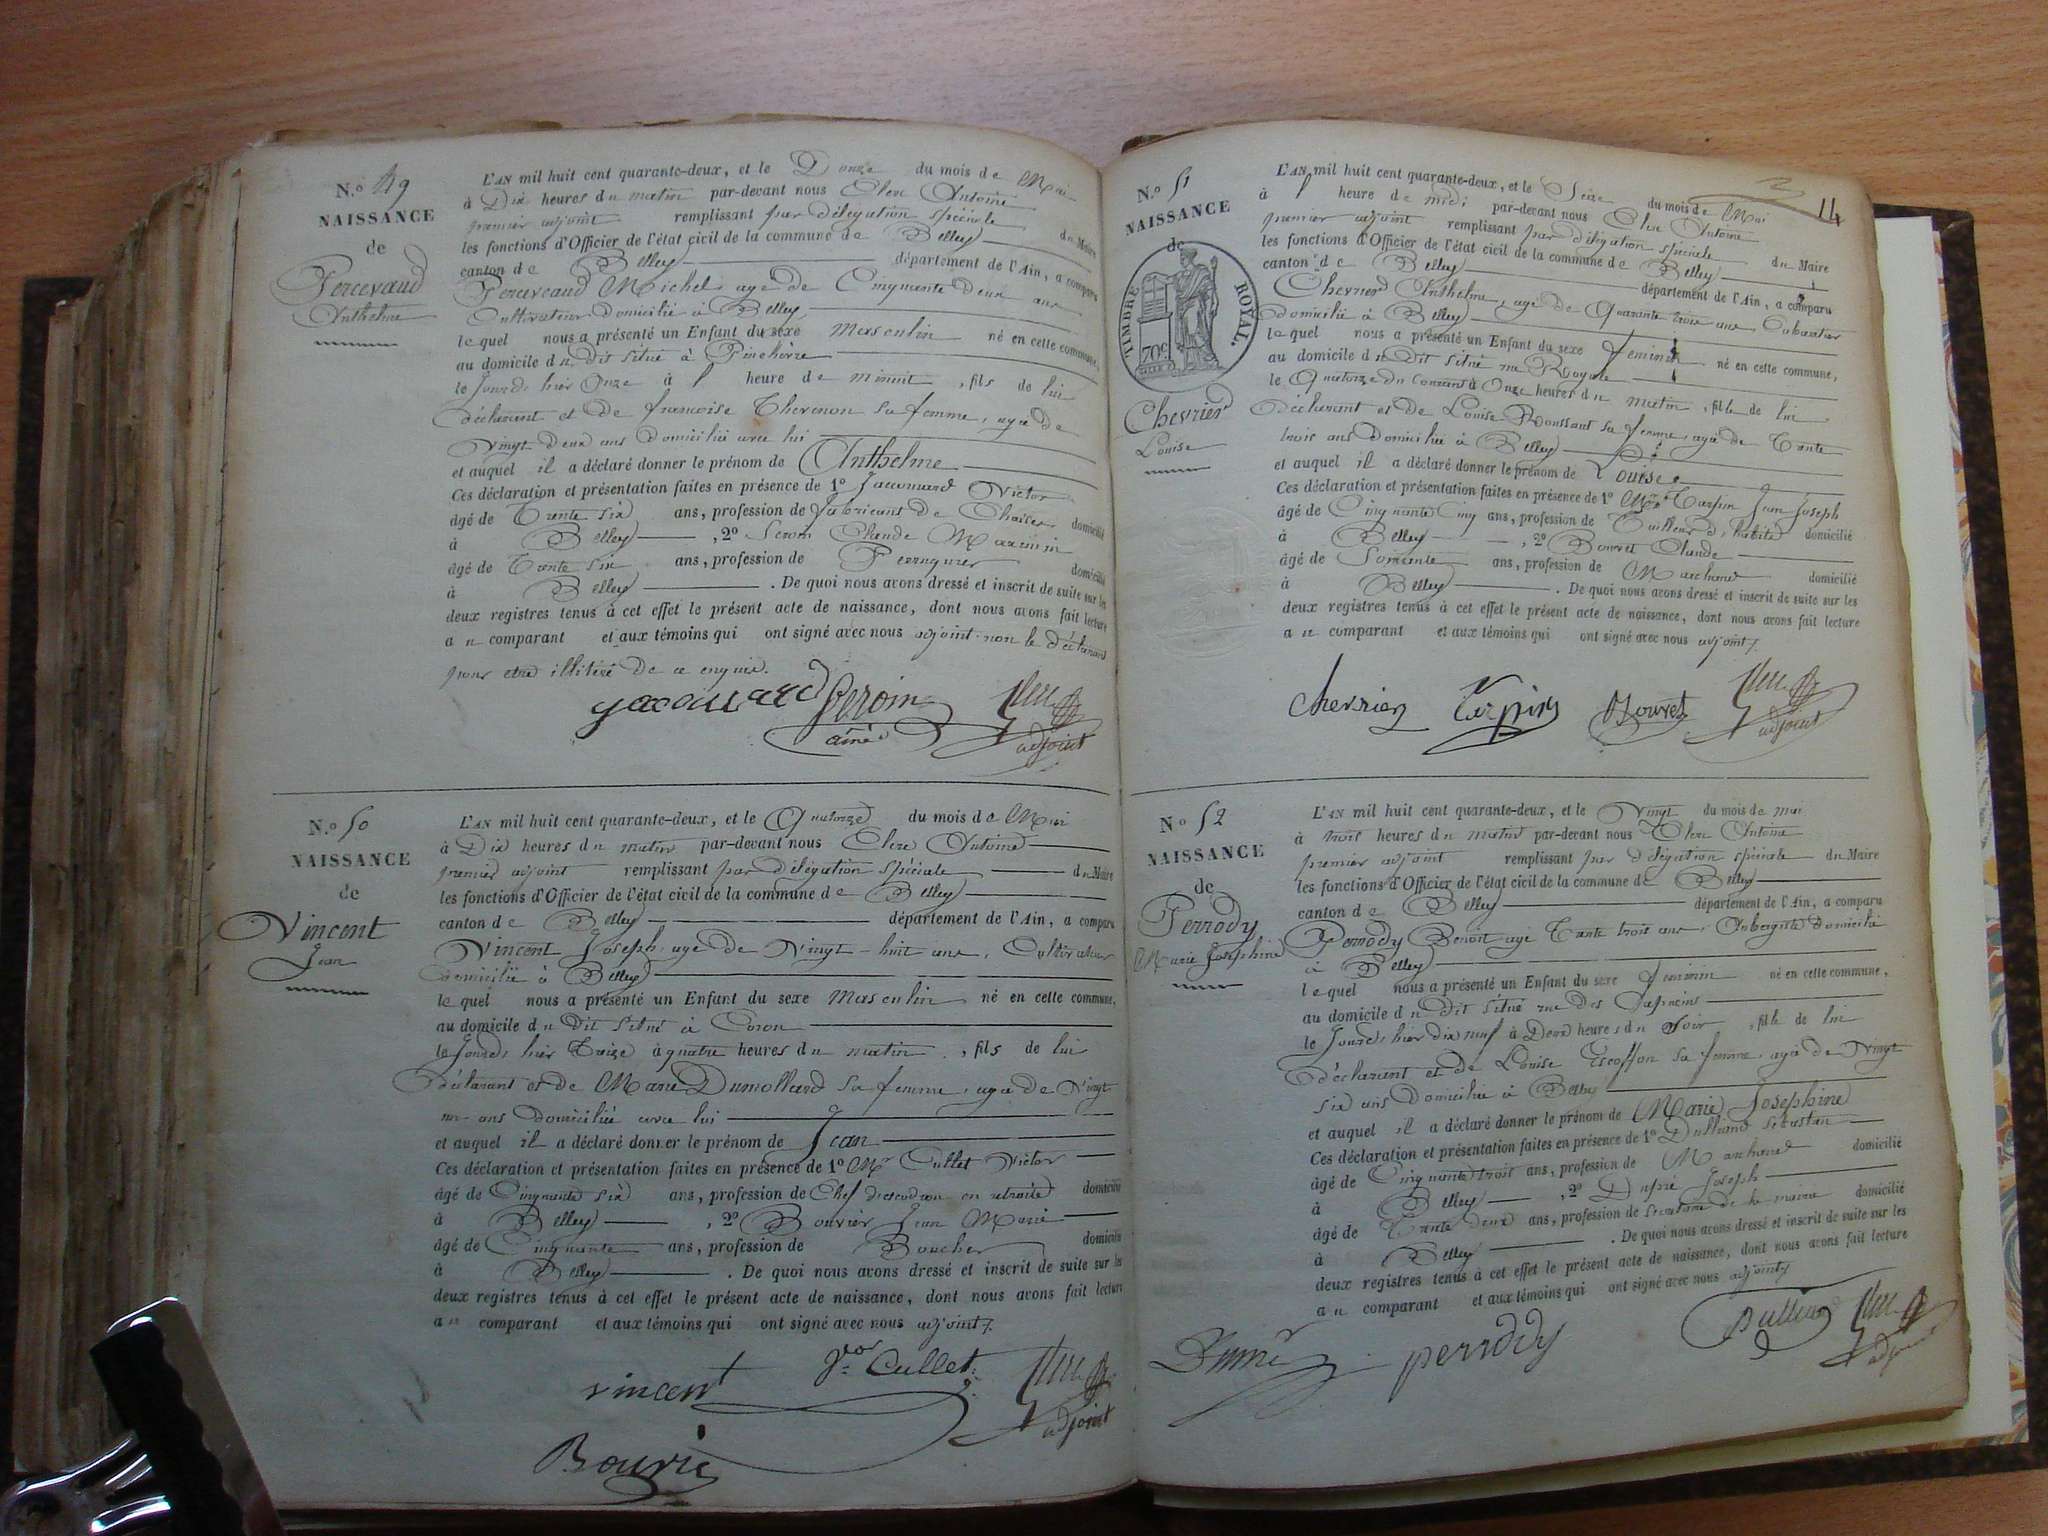 N.º 49
NAISSANCE
de
Percevaud
Anthelme
L'AN mil huit cent quarante-deux, et le Douze du mois de Mai
à Dix heures du matin par-devant nous Clerc Antoine
premier adjoint remplissant par délégation spéciale du Maire
les fonctions d'Officier de l'état civil de la commune de Belley
canton de Belley département de l'Ain, a comparu
Perceveaud Michel, age de Cinquante Deux ans
Cultivateur domicilié à Belley
lequel nous a présenté un Enfant du sexe Masculin né en cette commune,
au domicile du Dit situé à
le Jourd'hier Onze à heure de minuit, fils de lui
déclarant et de francoise Thevenon sa femme, agée de
Vingt deux ans domiciliée avec lui
et auquel il a déclaré donner le prénom de Anthelme
Ces déclaration et présentation faites en présence de 1º Jacquard Victor
âgé de Trente six ans, profession de fabricant de Chaises domicilié
à Belley, 2º Claude
âgé de Trente six ans, profession de Perruquier domicilié
à Belley. De quoi nous avons dressé et inscrit de suite sur les
deux registres tenus à cet effet le présent acte de naissance, dont nous avons fait lecture
au comparant et aux témoins qui ont signé avec nous adjoint non le déclarant
pour etre illiteré de ce enquis.
adjoint
N.º 50
NAISSANCE
de
Vincent
Jean
L'AN mil huit cent quarante-deux, et le Quatorze du mois de Mai
à Dix heures du matin par-devant nous Clerc Antoine
premier adjoint remplissant par délégation spéciale du Maire
les fonctions d'Officier de l'état civil de la commune de Belley
canton de Belley département de l'Ain, a comparu
Vincent Joseph, age de Vingt-huit ans, Cultivateur
domicilié à Belley
lequel nous a présenté un Enfant du sexe Masculin né en cette commune,
au domicile du Dit situé à Coron
le Jourd'hier Treize à quatre heures du matin, fils de lui
déclarant et de Marie Dumollard sa femme, agée de Vingt
un ans domiciliée avec lui
et auquel il a déclaré donner le prénom de Jean
Ces déclaration et présentation faites en présence de 1º Mr Cullet Victor
âgé de Cinquante six ans, profession de Chef d'escadron en retraite domicilié
à Belley, 2º Bouvier Jean Marie
âgé de Cinquante ans, profession de Boucher domicilié
à Belley. De quoi nous avons dressé et inscrit de suite sur les
deux registres tenus à cet effet le présent acte de naissance, dont nous avons fait lecture
au comparant et aux témoins qui ont signé avec nous adjoint.
vincent Cullet
adjoint
N.º 51
NAISSANCE
de
TIMBRE ROYAL.
70c
Chevrier
Louise
14
L'AN mil huit cent quarante-deux, et le Seize du mois de Mai
à heure de midi par-devant nous Clerc Antoine
premier adjoint remplissant par délégation spéciale du Maire
les fonctions d'Officier de l'état civil de la commune de Belley
canton de Belley département de l'Ain, a comparu
Chevrier Anthelme, age de Quarante trois ans, Cabaretier
domicilié à Belley
lequel nous a présenté un Enfant du sexe feminin né en cette commune,
au domicile du Dit situé rue Royale
le Quatorze du courant à Onze heures du matin, fille de lui
déclarant et de Louise Roussant sa femme, agée de Trente
trois ans Domiciliée à Belley
et auquel il a déclaré donner le prénom de Louise
Ces déclaration et présentation faites en présence de 1º Mr Tarpin Jean Joseph
âgé de Cinquante Cinq ans, profession de Tailleur d'habits domicilié
à Belley, 2º Bouvet Claude
âgé de Soixante ans, profession de Marchand domicilié
à Belley. De quoi nous avons dressé et inscrit de suite sur les
deux registres tenus à cet effet le présent acte de naissance, dont nous avons fait lecture
au comparant et aux témoins qui ont signé avec nous adjoint.
chevrier Tarpin Bouvet
adjoint
N.º 52
NAISSANCE
de
Perrody
Marie Josephine
L'AN mil huit cent quarante-deux, et le Vingt du mois de mai
à trois heures du matin par-devant nous Clerc Antoine
premier adjoint remplissant par délégation spéciale du Maire
les fonctions d'Officier de l'état civil de la commune de Belley
canton de Belley département de l'Ain, a comparu
Perrody Benoit age Trente trois ans, Aubergiste domicilié
à Belley
lequel nous a présenté un Enfant du sexe feminin né en cette commune,
au domicile du Dit situé rue des
le Jourd'hier dix neuf à Deux heures du soir, fille de lui
déclarant et de Louise Escoffon sa femme, agée de Vingt
six ans domiciliée à Belley
et auquel il a déclaré donner le prénom de Marie Josephine
Ces déclaration et présentation faites en présence de 1º Sébastien
âgé de Cinquante trois ans, profession de Marchand domicilié
à Belley, 2º Dupré Joseph
âgé de Trente deux ans, profession de Secretaire de la mairie domicilié
à Belley. De quoi nous avons dressé et inscrit de suite sur les
deux registres tenus à cet effet le présent acte de naissance, dont nous avons fait lecture
au comparant et aux témoins qui ont signé avec nous adjoint
perrody